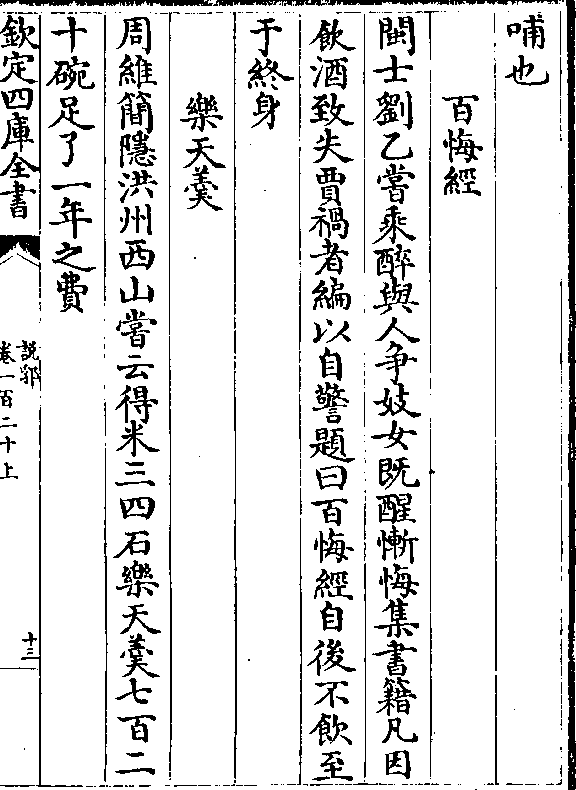 哺也
百悔經
閩士劉乙嘗乘醉與人爭妓女既醒慚悔集書籍凡因
飲酒致失賈禍者編以自警題曰百悔經自後不飲至
于終身
樂天羹
周維簡隱洪州西山嘗云得米三四石樂天羹七百二
十碗足了一年之費
欽定四庫全書
說郛
卷一百二十上
十三